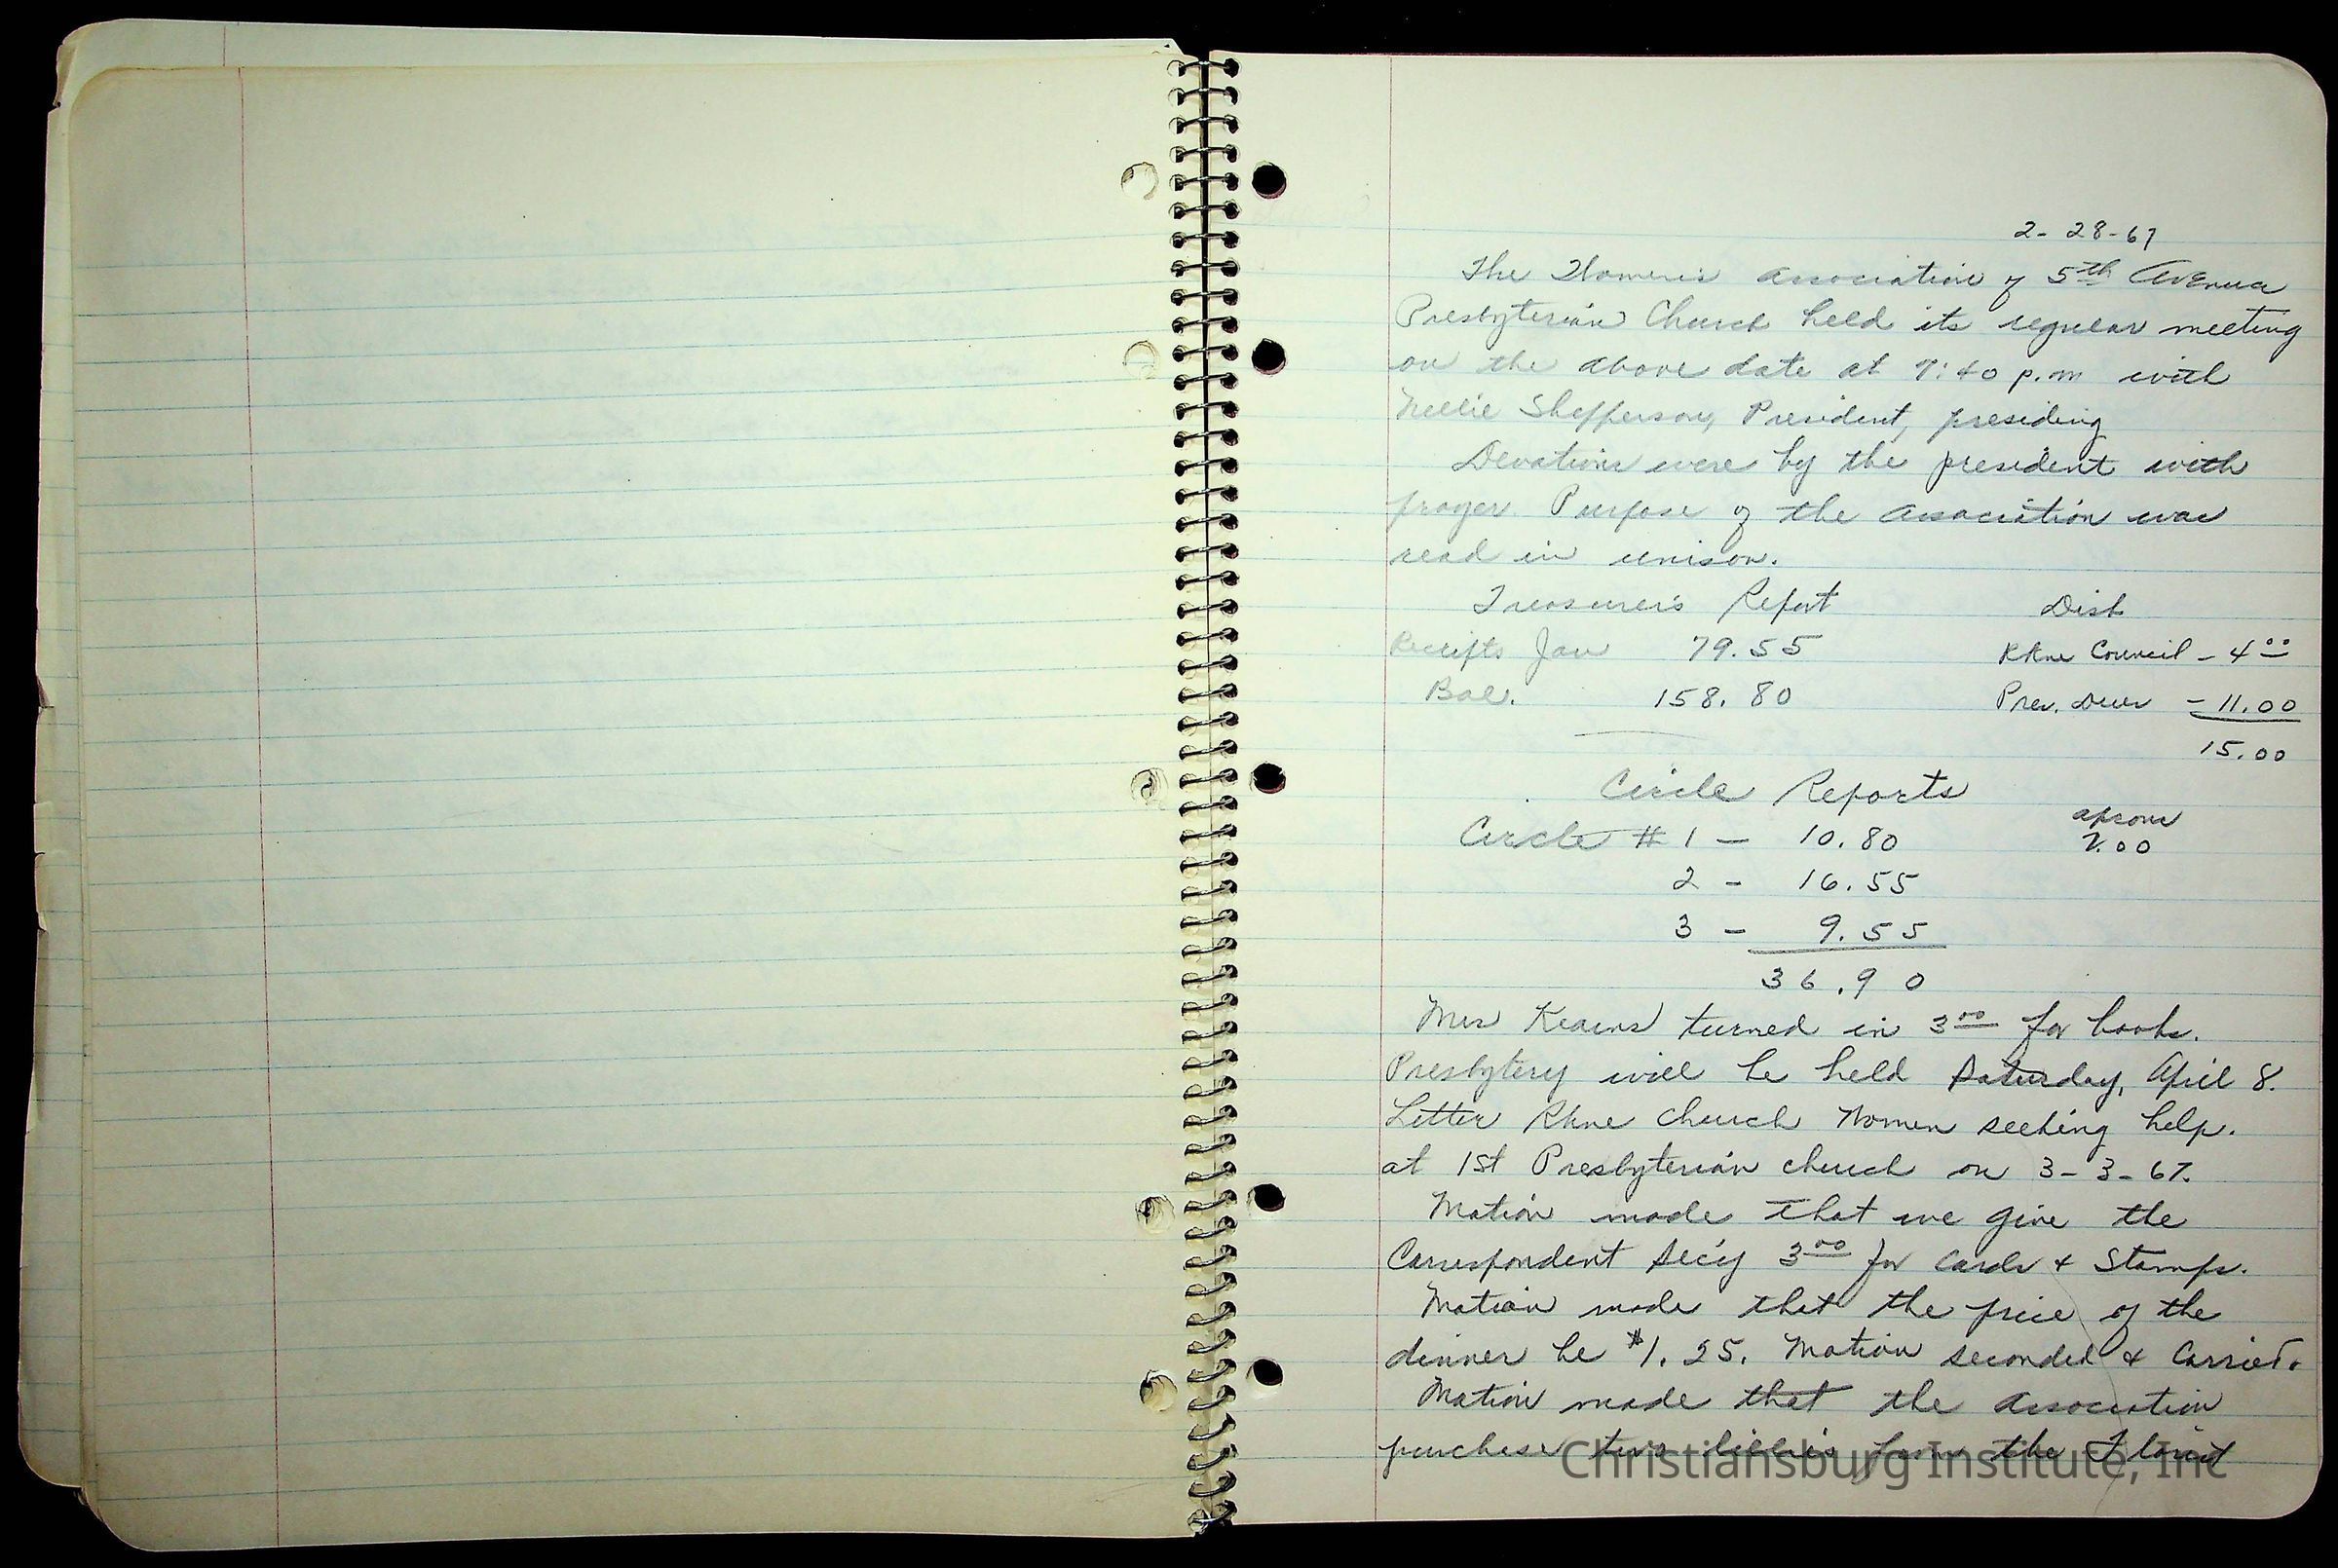 2-28-67
The Women's Association of 5th Avenue
Presbyterian Church held its regular meeting
on the above date at 7:40 p.m with
Nellie Shefferson, President, presiding
Devotions were by the president with
prayer. Purpose of the Association was
read in unison.
Treasurer's Report Disb
Receipts Jan 79.55 RKne Council - 4.00
Bal. 158.80 Pres. Dues - 11.00
15.00
Circle Reports
aprons
Circle # 1 - 10.80 2.00
2 - 16.55
3 - 9.55
36.90
Mrs Kearns turned in 3.00 for books.
Presbytery will be held Saturday, April 8.
Letter Rkne Church Women seeking help.
at 1st Presbyterian church on 3-3-67.
Motion made that we give the
Correspondent Sec'y 3.00 for cards & Stamps.
Motion made that the price of the
dinner be $1.25. Motion seconded & Carried.
Motion made that the Association
purchase two lillies from the Florist
Christiansburg Institute, Inc